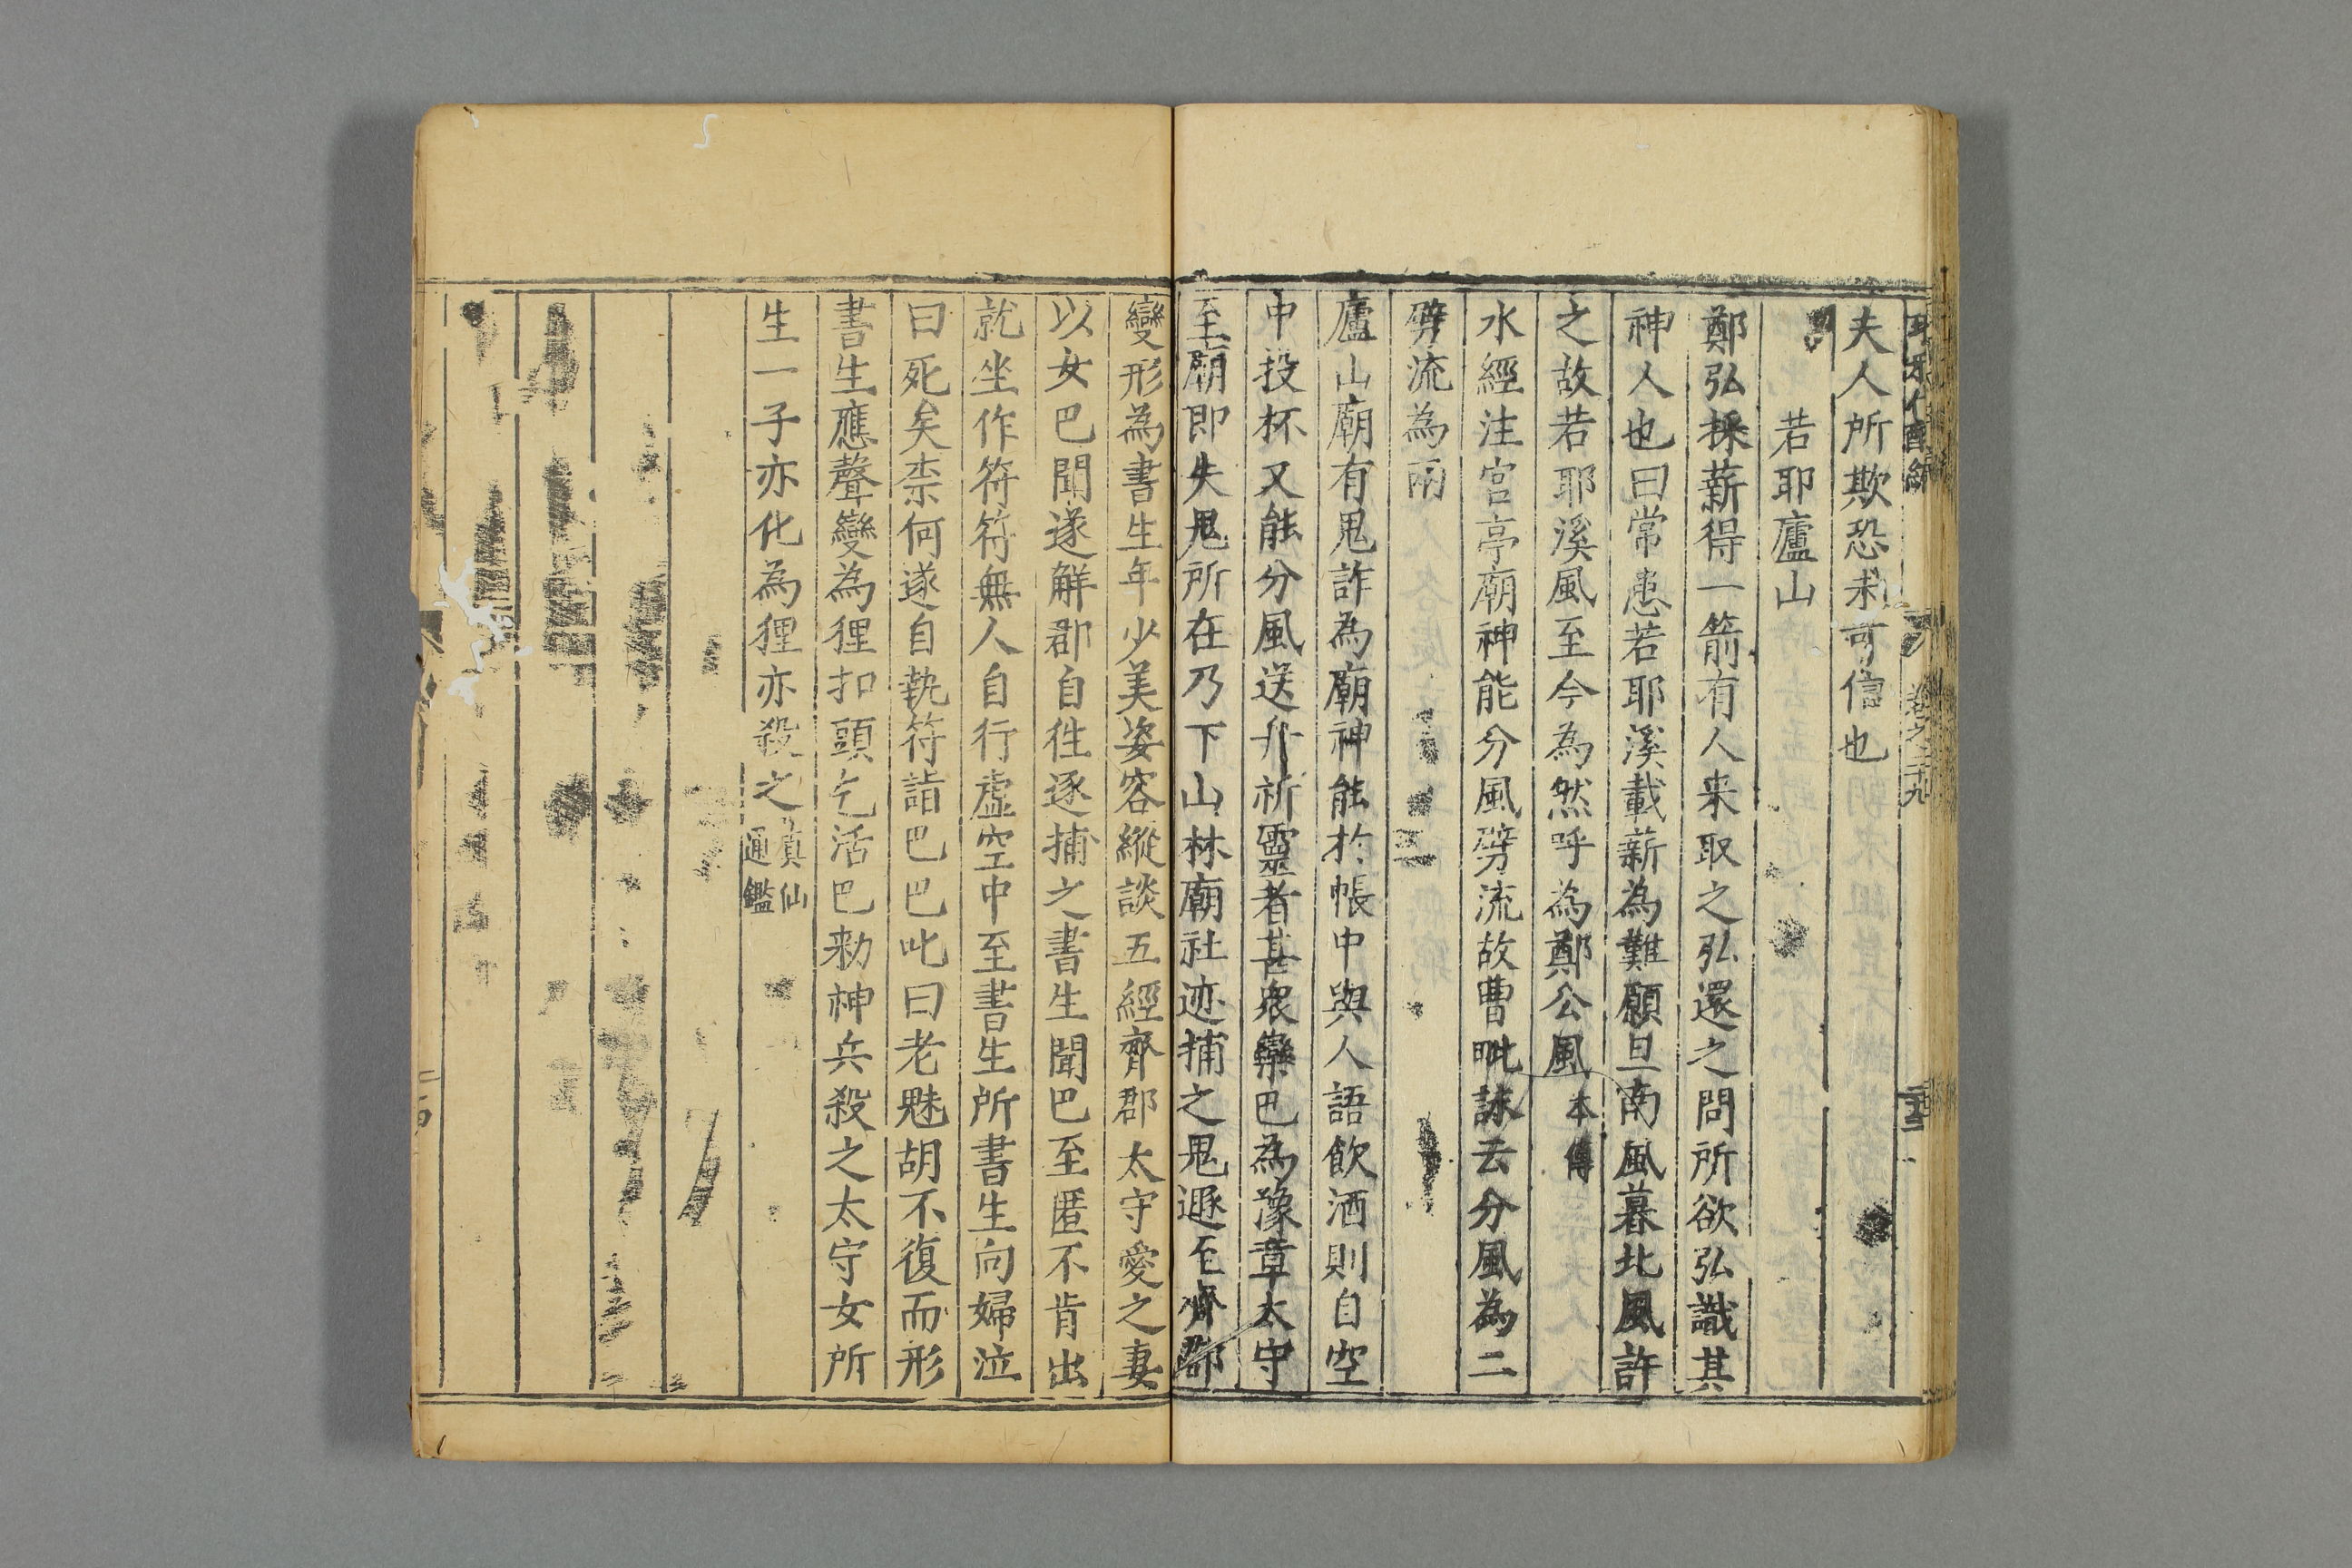 夫人所欺恐未可信也
若耶廬山
鄭弘採薪得一箭有人来取之弘還之問所欲弘識其
神人也曰常患若耶溪載薪為難願旦南風暮北風許
之故若耶溪風至今為然呼為鄭公風本傳
水經注宮亭廟神能分風劈流故曹毗詠云分風為二
劈流為兩
廬山廟有鬼詐為廟神能於帳中與人語飲酒則自空
中投杯又能分風送舟祈靈者甚衆欒巴為豫章太守
至廟即失鬼所在乃下山林廟社迹捕之鬼遯至齊郡
變形為書生年少美姿容縱談五經齊郡太守愛之妻
以女巴聞遂解郡自徃逐捕之書生聞巴至匿不肯出
就坐作符符無人自行虛空中至書生所書生向婦泣
曰死矣柰何遂自執符詣巴巴叱曰老魅胡不復而形
書生應聲變為狸扣頭乞活巴勑神兵殺之太守女所
生一子亦化為狸亦殺之真仙通鑑